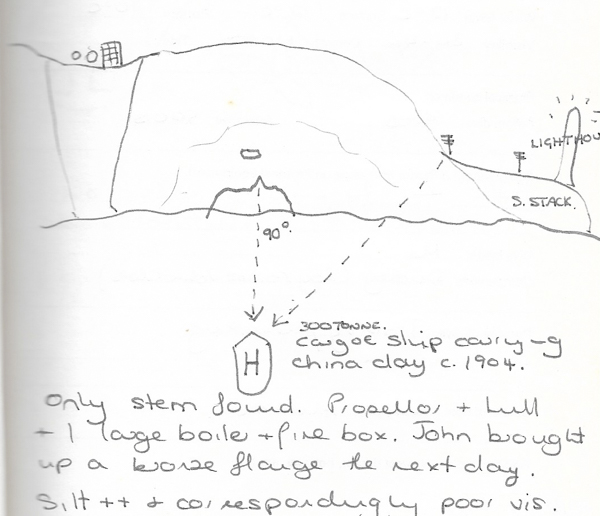 LIGHTHOU
S. STACK.
90°.
300TONNE.
cargoe ship carry-g
H
china clay c. 1904.
Only stern found. Propellor + hull
+ 1 large boiler + fire box. John brought
up a bronze flange the next day.
Silt ++ & correspondingly poor vis.